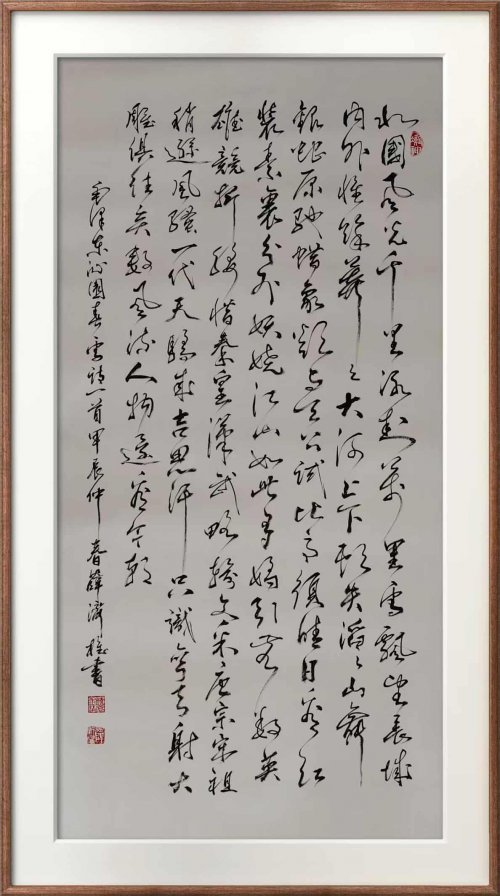 北國風光千里冰封萬里雪飄望長城
内外惟餘莽々大河上下頓失滔々山舞
銀蛇原馳蜡象欲與天公試比高須晴日看紅
裝素裹分外妖嬈江山如此多嬌引無數英
雄競折腰惜秦皇漢武略輸文采唐宗宋祖
稍遜風騷一代天驕成吉思汗只識彎弓射大
雕俱往矣數風流人物還看今朝
毛澤東沁園春雪詩一首甲辰仲春薛書